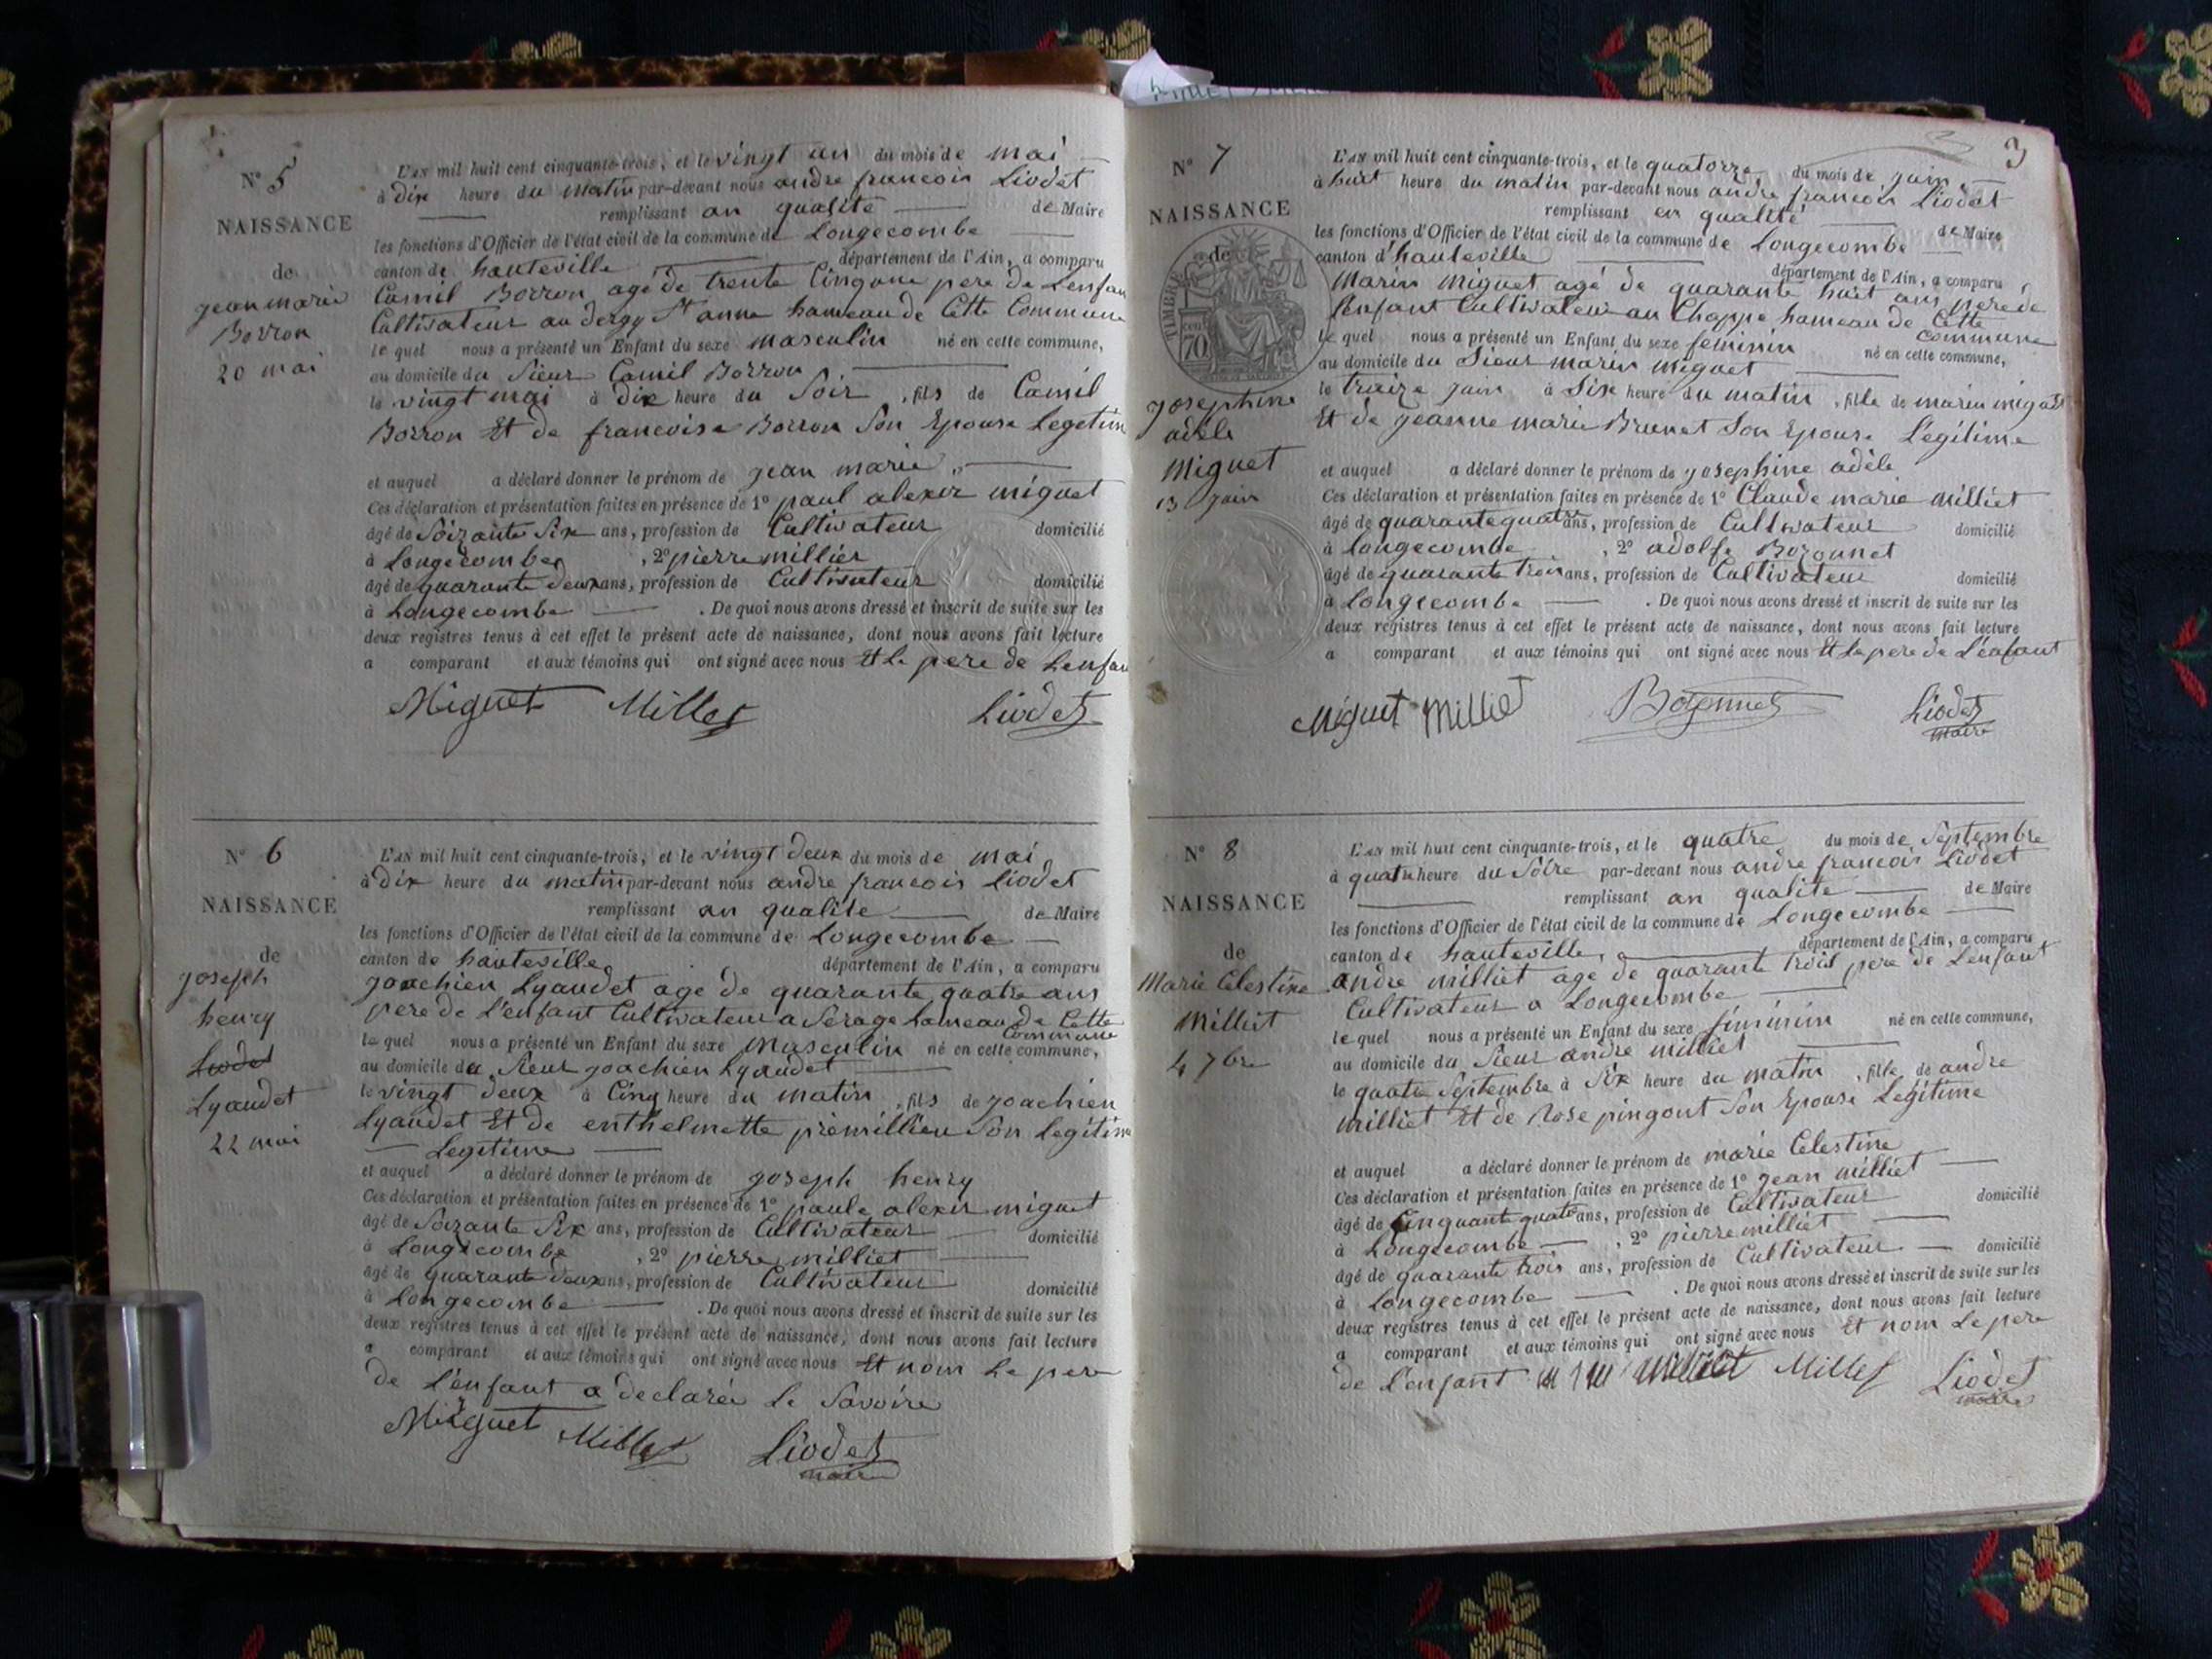 N° 5
NAISSANCE
de
jean marie
Borron
20 mai
L'AN mil huit cent cinquante-trois, et le vingt un du mois de mai
à dix heure du matin par-devant nous andre francois Liodet
remplissant an qualite de Maire
les fonctions d'Officier de l'état civil de la commune de Longecombe
canton de hauteville département de l'Ain, a comparu
Camil Borron age de trente Cinq pere de Lenfan
Cultivateur au dergy St anne hameau de Cette Commune
le quel nous a présenté un Enfant du sexe masculin né en cette commune,
au domicile du Sieur Camil Borron
le vingt mai à dix heure du Soir , fils de Camil
Borron Et de francoise Borron Son Epouse Legetim
et auquel a déclaré donner le prénom de jean marie
Ces déclaration et présentation faites en présence de 1° paul alexis miguet
âgé de Soixante Six ans, profession de Cultivateur domicilié
à Longecombe , 2° pierre millier
âgé de quarante deux ans, profession de Cultivateur domicilié
à Longecombe . De quoi nous avons dressé et inscrit de suite sur les
deux registres tenus à cet effet le présent acte de naissance, dont nous avons fait lecture
a comparant et aux témoins qui ont signé avec nous Et Le pere de Lenfan
Miguet Millet Liodet
N° 6
NAISSANCE
de
joseph
henry
Liodet
Lyaudet
22 mai
L'AN mil huit cent cinquante-trois, et le vingt deux du mois de mai
à dix heure du matin par-devant nous andre francois Liodet
remplissant an qualite de Maire
les fonctions d'Officier de l'état civil de la commune de Longecombe
canton de hauteville département de l'Ain, a comparu
joachien Lyaudet age de quarante quatre ans
pere de L'enfant Cultivateur a Serage hameau de Cette
Commune
le quel nous a présenté un Enfant du sexe masculin né en cette commune,
au domicile du Sieur joachien Lyaudet
le vingt deux à Cinq heure du matin , fils de joachien
Lyaudet Et de enthelmette premillieu Son Legitim
Legitime
et auquel a déclaré donner le prénom de joseph henry
Ces déclaration et présentation faites en présence de 1° paule alexis miguet
âgé de Soixante Six ans, profession de Cultivateur domicilié
à Longecombe , 2° pierre milliet
âgé de quarante deux ans, profession de Cultivateur domicilié
à Longecombe . De quoi nous avons dressé et inscrit de suite sur les
deux registres tenus à cet effet le présent acte de naissance, dont nous avons fait lecture
a comparant et aux témoins qui ont signé avec nous Et nom Le pere
de L'enfant a declarée Le Savoire
Miguet Millet Liodet
maire
3
N° 7
NAISSANCE
de
TIMBRE
70
josephine
adèle
Miguet
13 juin
L'AN mil huit cent cinquante-trois, et le quatorze du mois de juin
à huit heure du matin par-devant nous andre francois Liodet
remplissant en qualité de Maire
les fonctions d'Officier de l'état civil de la commune de Longecombe
canton d'hauteville département de l'Ain, a comparu
Marin Miguet agé de quarante huit ans pere de
l'enfant Cultivateur au Chappe hameau de Cette
Commune
le quel nous a présenté un Enfant du sexe feminin né en cette commune,
au domicile du Sieur marin Miguet
le traize juin à Six heure du matin , fille de marin miguet
Et de jeanne marie Brunet Son Epouse Légitime
et auquel a déclaré donner le prénom de josephine adèle
Ces déclaration et présentation faites en présence de 1° Claude marie Milliet
âgé de quarante quatre ans, profession de Cultivateur domicilié
à Longecombe , 2° adolfe Bozonnet
âgé de quarante trois ans, profession de Cultivateur domicilié
à Longecombe . De quoi nous avons dressé et inscrit de suite sur les
deux registres tenus à cet effet le présent acte de naissance, dont nous avons fait lecture
a comparant et aux témoins qui ont signé avec nous Et Le pere de L'enfant
Miguet Milliet Bozonnet Liodet
maire
N° 8
NAISSANCE
de
Marie Celestine
Milliet
4 7bre
L'AN mil huit cent cinquante-trois, et le quatre du mois de Septembre
à quatre heure du Soire par-devant nous andre francois Liodet
remplissant an qualite de Maire
les fonctions d'Officier de l'état civil de la commune de Longecombe
canton de hauteville, département de l'Ain, a comparu
andre milliet age de quarante trois pere de Lenfant
Cultivateur a Longecombe
le quel nous a présenté un Enfant du sexe féminin né en cette commune,
au domicile du Sieur andre milliet
le quatre Septembre à Six heure du matin , fille de andre
milliet Et de Rose pingont Son Epouse Legitime
et auquel a déclaré donner le prénom de marie Celestine
Ces déclaration et présentation faites en présence de 1° jean milliet
âgé de Cinquante quatre ans, profession de Cultivateur domicilié
à Longecombe , 2° pierre milliet
âgé de quarante trois ans, profession de Cultivateur domicilié
à Longecombe . De quoi nous avons dressé et inscrit de suite sur les
deux registres tenus à cet effet le présent acte de naissance, dont nous avons fait lecture
a comparant et aux témoins qui ont signé avec nous Et nom Le pere
de L'enfant Milliet Millet Liodet
maire